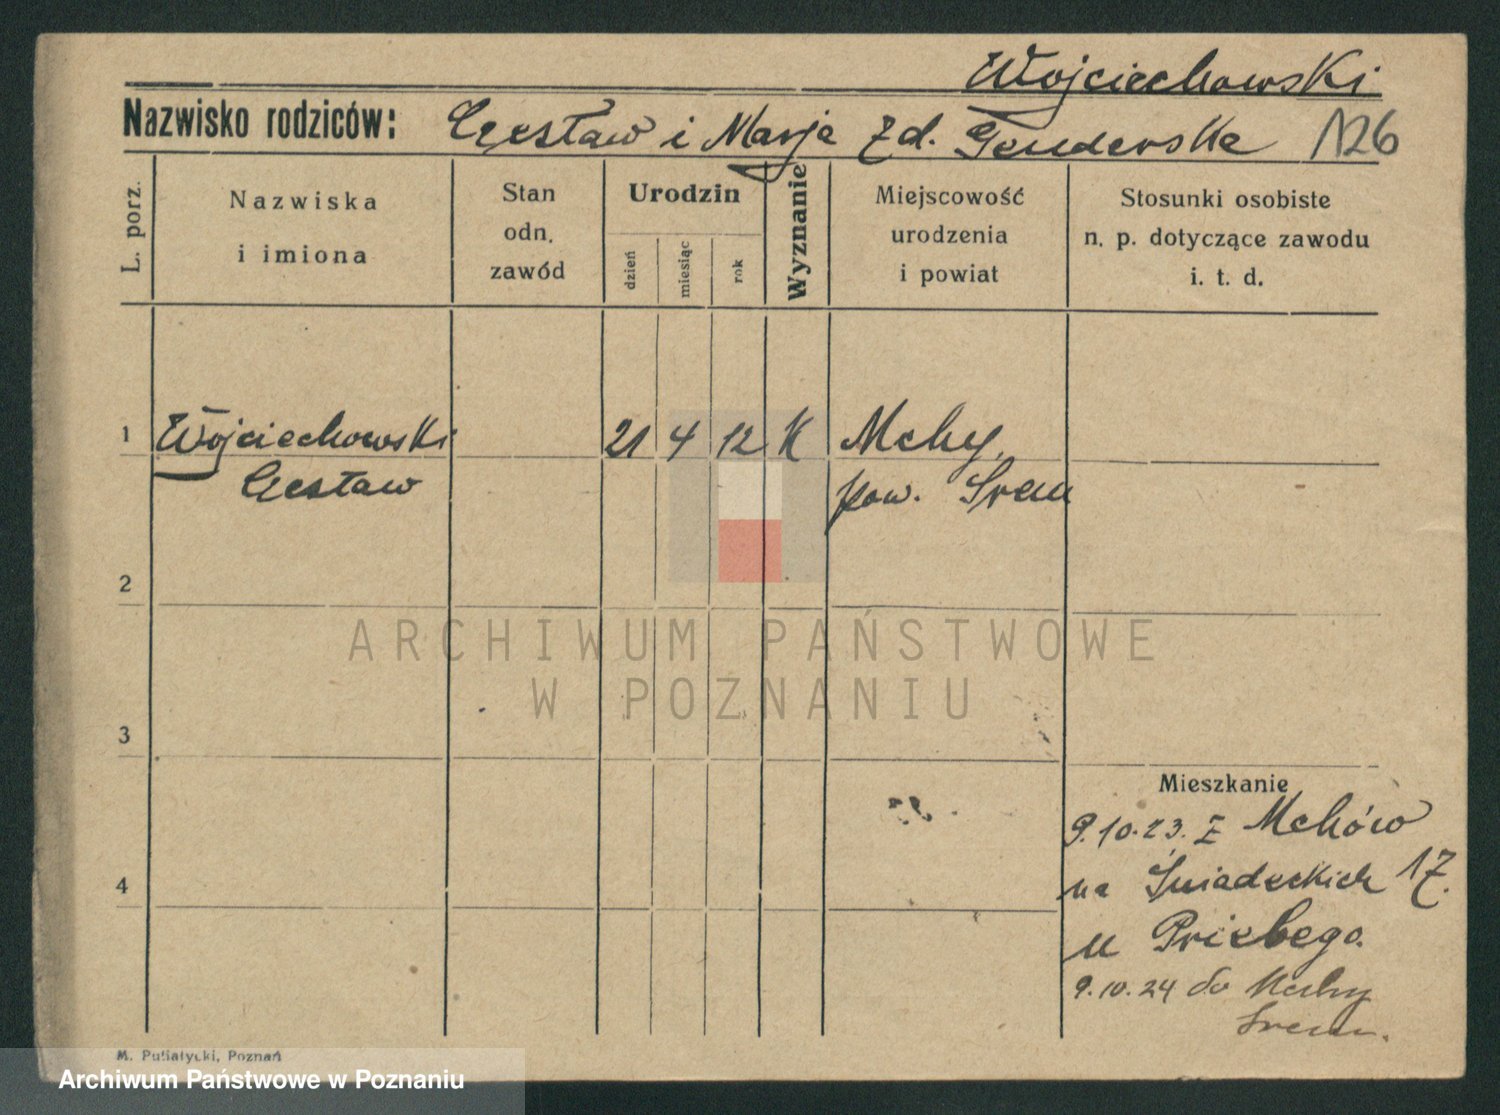 Wojciechowski
Nazwisko rodziców: Czesław i Marja zd. Genderska 126
L. porz.
Nazwiska
i imiona
Stan
odn.
zawód
Urodzin
dzień
miesiąc
rok
Wyznanie
Miejscowość
urodzenia
i powiat
Stosunki osobiste
n. p. dotyczące zawodu
i. t. d.
1 Wojciechowski 21 4 12 K Mchy,
Czesław pow. Śrem
2
ARCHIWUM PAŃSTWOWE
W POZNANIU
3
Mieszkanie
9.10.23. z Mchów
4
na Śniadeckich 17.
u Priebego.
9.10.24 do Mchy
Śrem.
M. Putiatycki, Poznań
Archiwum Państwowe w Poznaniu